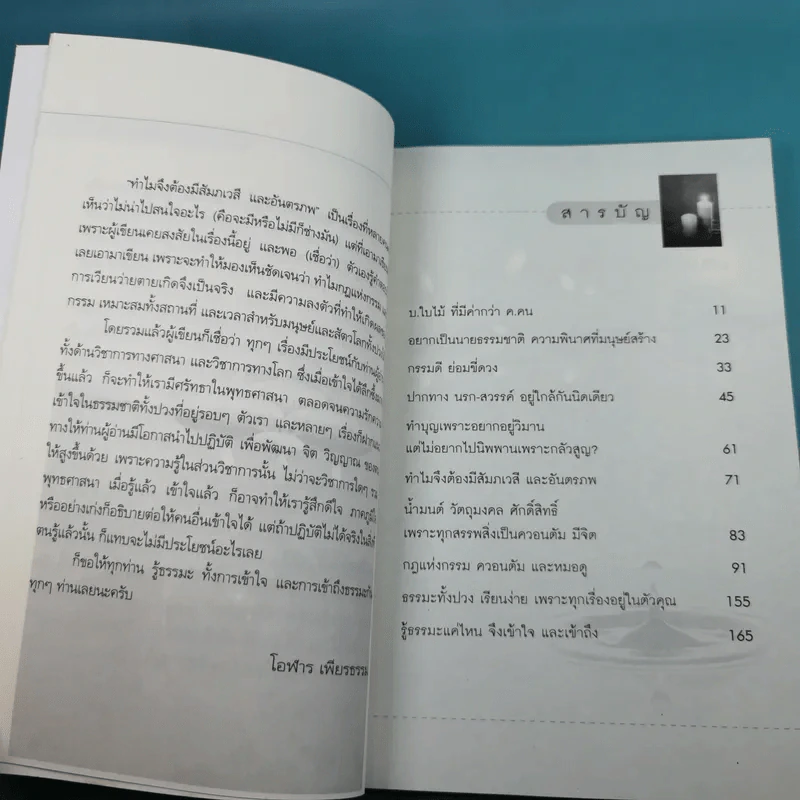 "ทำไมจึงต้องมีสัมภเวสี และอันตรภพ" เป็นเรื่องที่หลายคน
เห็นว่าไม่น่าไปสนใจอะไร (คือจะมีหรือไม่มีก็ช่างมัน) แต่ที่เอามาเขียน
เพราะผู้เขียนเคยสงสัยในเรื่องนี้อยู่ และพอ (เชื่อว่า) ตัวเองรู้คำตอบ
เลยเอามาเขียน เพราะจะทำให้มองเห็นชัดเจนว่า ทำไมกฎแห่งกรรม
การเวียนว่ายตายเกิดจึงเป็นจริง และมีความลงตัวที่ทำให้เกิดผล
กรรม เหมาะสมทั้งสถานที่ และเวลาสำหรับมนุษย์และสัตว์โลกทั้งปวง
โดยรวมแล้วผู้เขียนก็เชื่อว่า ทุกๆ เรื่องมีประโยชน์กับท่านผู้
ทั้งด้านวิชาการทางศาสนา และวิชาการทางโลก ซึ่งเมื่อเข้าใจได้ลึกซึ้ง
ขึ้นแล้ว ก็จะทำให้เรามีศรัทธาในพุทธศาสนา ตลอดจนความรักความ
เข้าใจในธรรมชาติทั้งปวงที่อยู่รอบๆ ตัวเรา และหลายๆ เรื่องก็
ทางให้ท่านผู้อ่านมีโอกาสนำไปปฏิบัติ เพื่อพัฒนา จิต วิญญาณ ของ
ให้สูงขึ้นด้วย เพราะความรู้ในส่วนวิชาการนั้น ไม่ว่าจะวิชาการใดๆ
พุทธศาสนา เมื่อรู้แล้ว เข้าใจแล้ว ก็อาจทำให้เรารู้สึกดีใจ ภาคภูมิใจ
หรืออย่างเก่งก็อธิบายต่อให้คนอื่นเข้าใจได้ แต่ถ้าปฏิบัติไม่ได้จริงในสิ่งที่
ตนรู้แล้วนั้น ก็แทบจะไม่มีประโยชน์อะไรเลย
ก็ขอให้ทุกท่าน รู้ธรรมะ ทั้งการเข้าใจ และการเข้าถึงธรรมะกัน
ทุกๆ ท่านเลยนะครับ
โอฬาร เพียรธรรม
สารบัญ
บ.ใบไม้ ที่มีค่ากว่า ค.คน 11
อยากเป็นนายธรรมชาติ ความพินาศที่มนุษย์สร้าง 23
กรรมดี ย่อมขี่ดวง 33
ปากทาง นรก-สวรรค์ อยู่ใกล้กันนิดเดียว 45
ทำบุญเพราะอยากอยู่วิมาน
แต่ไม่อยากไปนิพพานเพราะกลัวสูญ? 61
ทำไมจึงต้องมีสัมภเวสี และอันตรภพ 71
น้ำมนต์ วัตถุมงคล ศักดิ์สิทธิ์
เพราะทุกสรรพสิ่งเป็นควอนตัม มีจิต 83
กฎแห่งกรรม ควอนตัม และหมอดู 91
ธรรมะทั้งปวง เรียนง่าย เพราะทุกเรื่องอยู่ในตัวคุณ 155
รู้ธรรมะแค่ไหน จึงเข้าใจ และเข้าถึง 165